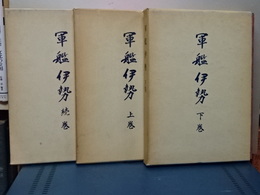 軍艦伊勢
続巻
軍艦伊勢
上巻
軍艦伊勢
下巻